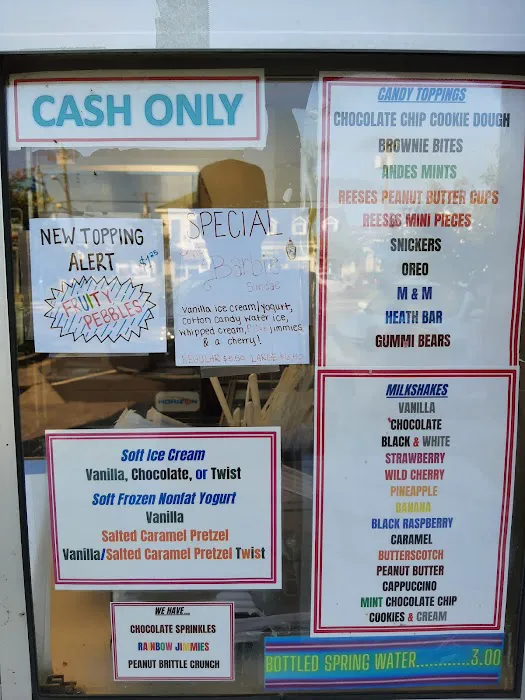 CASH ONLY
NEW TOPPING
ALERT
$1.25
FRUITY
PEBBLES
SPECIAL
Barbie
Sundae
Vanilla ice cream/yogurt,
cotton candy water ice,
whipped cream, Pink jimmies
& a cherry!
REGULAR LARGE
Soft Ice Cream
Vanilla, Chocolate, or Twist
Soft Frozen Nonfat Yogurt
Vanilla
Salted Caramel Pretzel
Vanilla/Salted Caramel Pretzel Twist
WE HAVE...
CHOCOLATE SPRINKLES
RAINBOW JIMMIES
PEANUT BRITTLE CRUNCH
CANDY TOPPINGS
CHOCOLATE CHIP COOKIE DOUGH
BROWNIE BITES
ANDES MINTS
REESES PEANUT BUTTER CUPS
REESES MINI PIECES
SNICKERS
OREO
M & M
HEATH BAR
GUMMI BEARS
MILKSHAKES
VANILLA
CHOCOLATE
BLACK & WHITE
STRAWBERRY
WILD CHERRY
PINEAPPLE
BANANA
BLACK RASPBERRY
CARAMEL
BUTTERSCOTCH
PEANUT BUTTER
CAPPUCCINO
MINT CHOCOLATE CHIP
COOKIES & CREAM
BOTTLED SPRING WATER............3.00
HORIZON